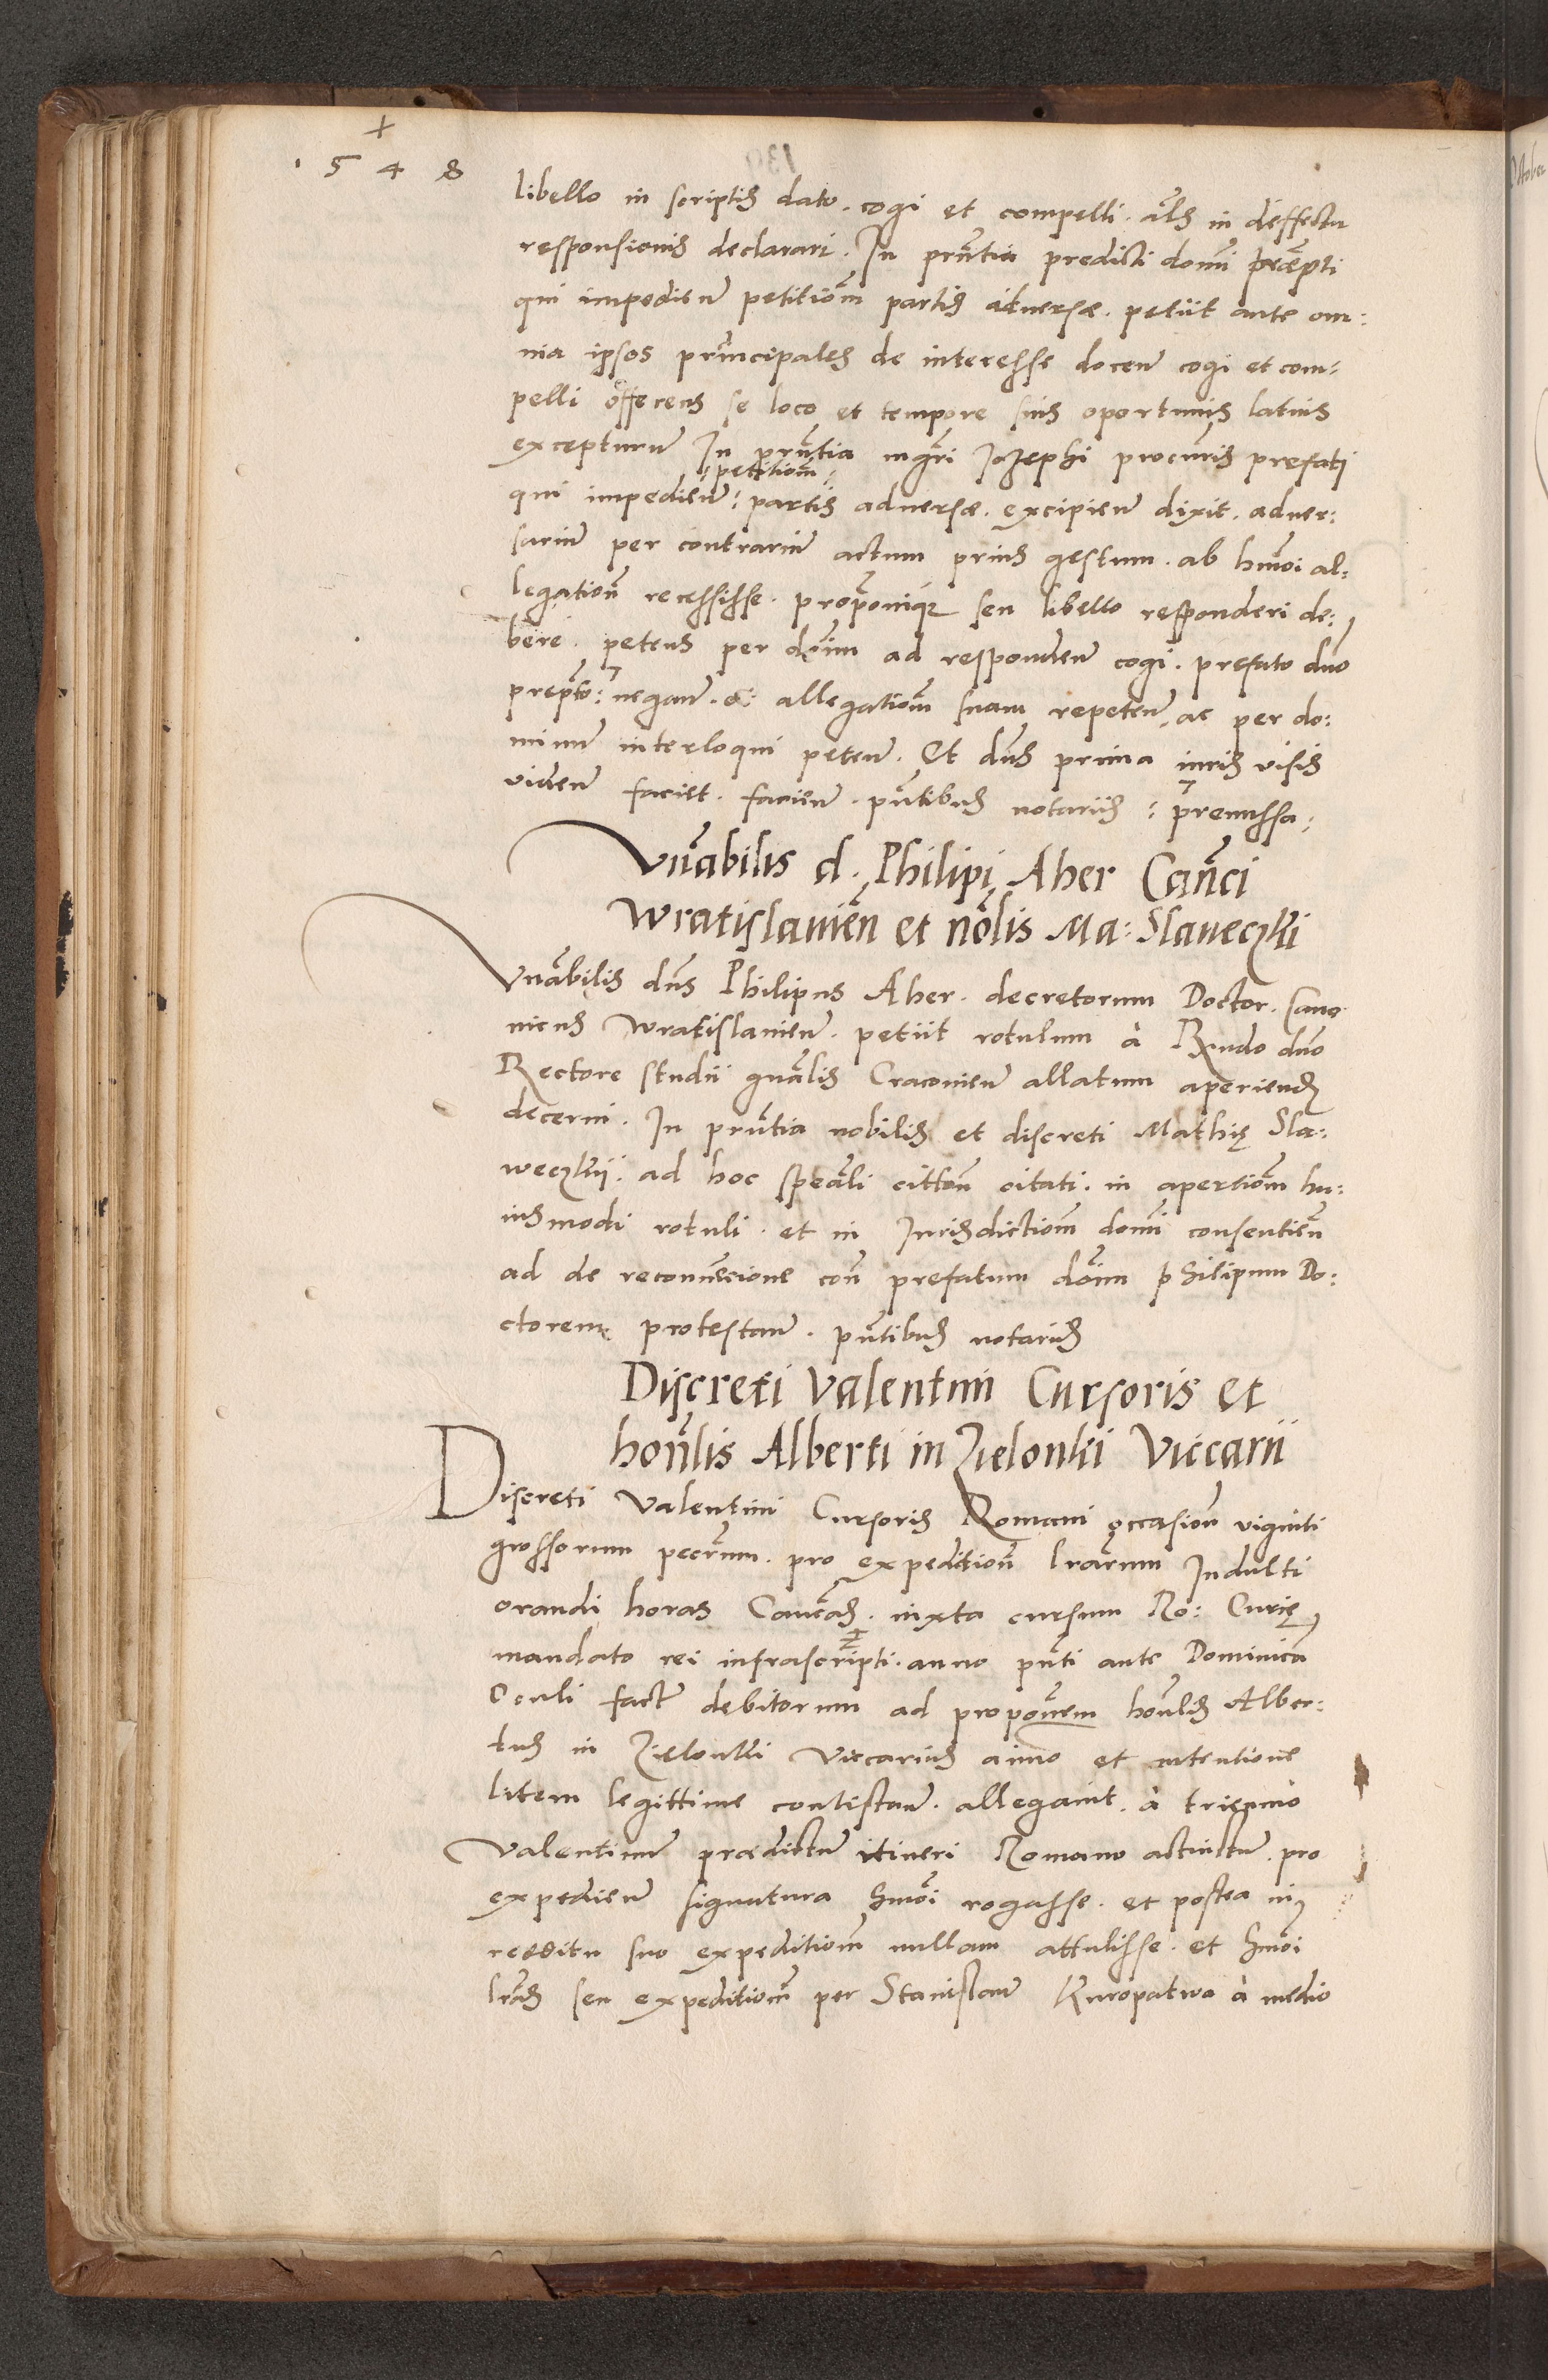 1548
libello in scriptis dato. cogi et compelli. als in deffectu
responsionis declarari. In prntia predicti domi
qui impedien petitiom partis adversæ. petiit ante om:
nia ipsos principales de interesse docen cogi et com:
pelli offerens se loco et tempore suis oportunis latius
excepturum In prntia mgri Iozephi procuris prefati
:petitiom:
qui impedien: partis adversæ. excipien dixit. adver:
sarium per contrarium actum prius gestum. ab hmoi al:
legation recessisse. proponiqz seu libello responderi de:
bere. petens per doim ad responden cogi. prefato dno
negan. & allegatiom suam repeten, ac per do:
minum interloqui peten. Et dns prima iuris visis
viden faciet. facien. pntibus notariis : premissa:
Vnabilis d. Philipi Aher Canci
Wratislavien et nolis Ma: Slaveczki
Vnabilis dns Philipus Aher. decretorum Doctor. Cano
nicus Wratislavien. petiit rotulum à Rndo dno
Rectore studii gnalis Cracovien allatum aperiend
decerni. In prntia nobilis et discreti Mathię Sla:
weczkii. ad hoc speali citton citati. in apertiom hu:
iusmodi rotuli. et in Jurisdictiom domi consentien
ad de reconvencione con prefatum doim Philipum Do:
ctorem protestan. pntibus notariis
Discreti Valentini Cursoris et
honlis Alberti in Zielonki Viccarii
Discreti Valentini Cursoris Romani occasion viginti
grossorum pecrum. pro expedition lrarum Indulti
orandi horas Canocas. iuxta cursum Ro: Curię
mandato rei infrascripti. anno pnti ante Dominica
Oculi fact debitorum ad proponem honlis Alber:
tus in Zielonki Viccarius aimo et intentione
litem legittime contestan. allegavit. à triennio
Valentinum prædictum itineri Romano accinctum. pro
expedien signatura hmoi rogasse. et postea in
redditu suo expeditiom nullam attulisse. et hmoi
lras seu expeditiom per Stanislaum Kuropatwa à medio